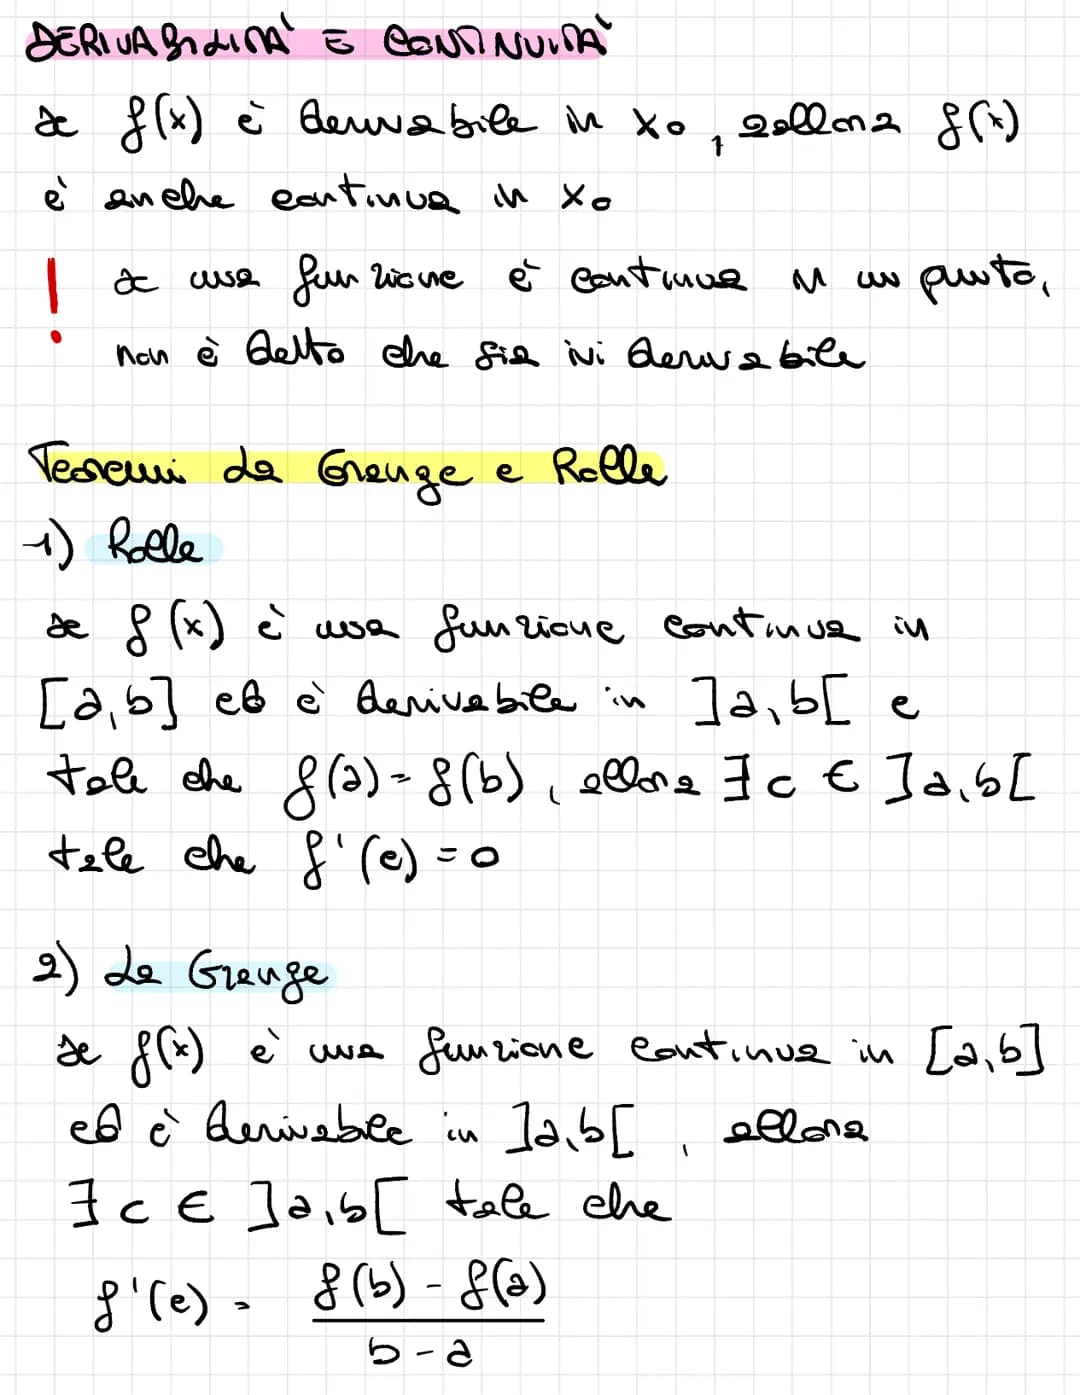 DERIVABILITÀ E CONTINUITÀ
se f(x) è derivabile in x₀, allora f(x)
è anche continua in x₀
! se una funzione è continua in un punto,
non è detto che sia ivi derivabile
Teoremi La Grange e Rolle
1) Rolle
se f(x) è una funzione continua in
[a,b] ed è derivabile in ]a,b[ e
tale che f(a) = f(b), allora ∃ c ∈ ]a,b[
tale che f'(c) = 0
2) La Grange
se f(x) è una funzione continua in [a,b]
ed è derivabile in ]a,b[, allora
∃ c ∈ ]a,b[ tale che
f'(c) = f(b) - f(a)
b - a